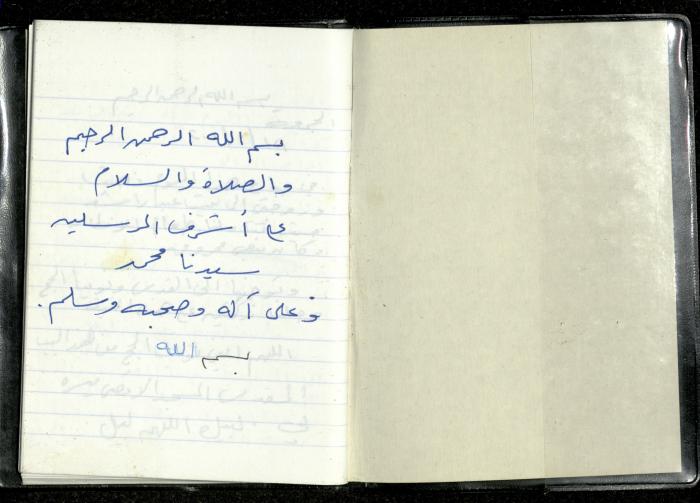 بسم الله الرحمن الرحيم
والصلاة والسلام
على أشرف المرسلين
سيدنا محمد
وعلى آله وصحبه وسلم.
بسم الله